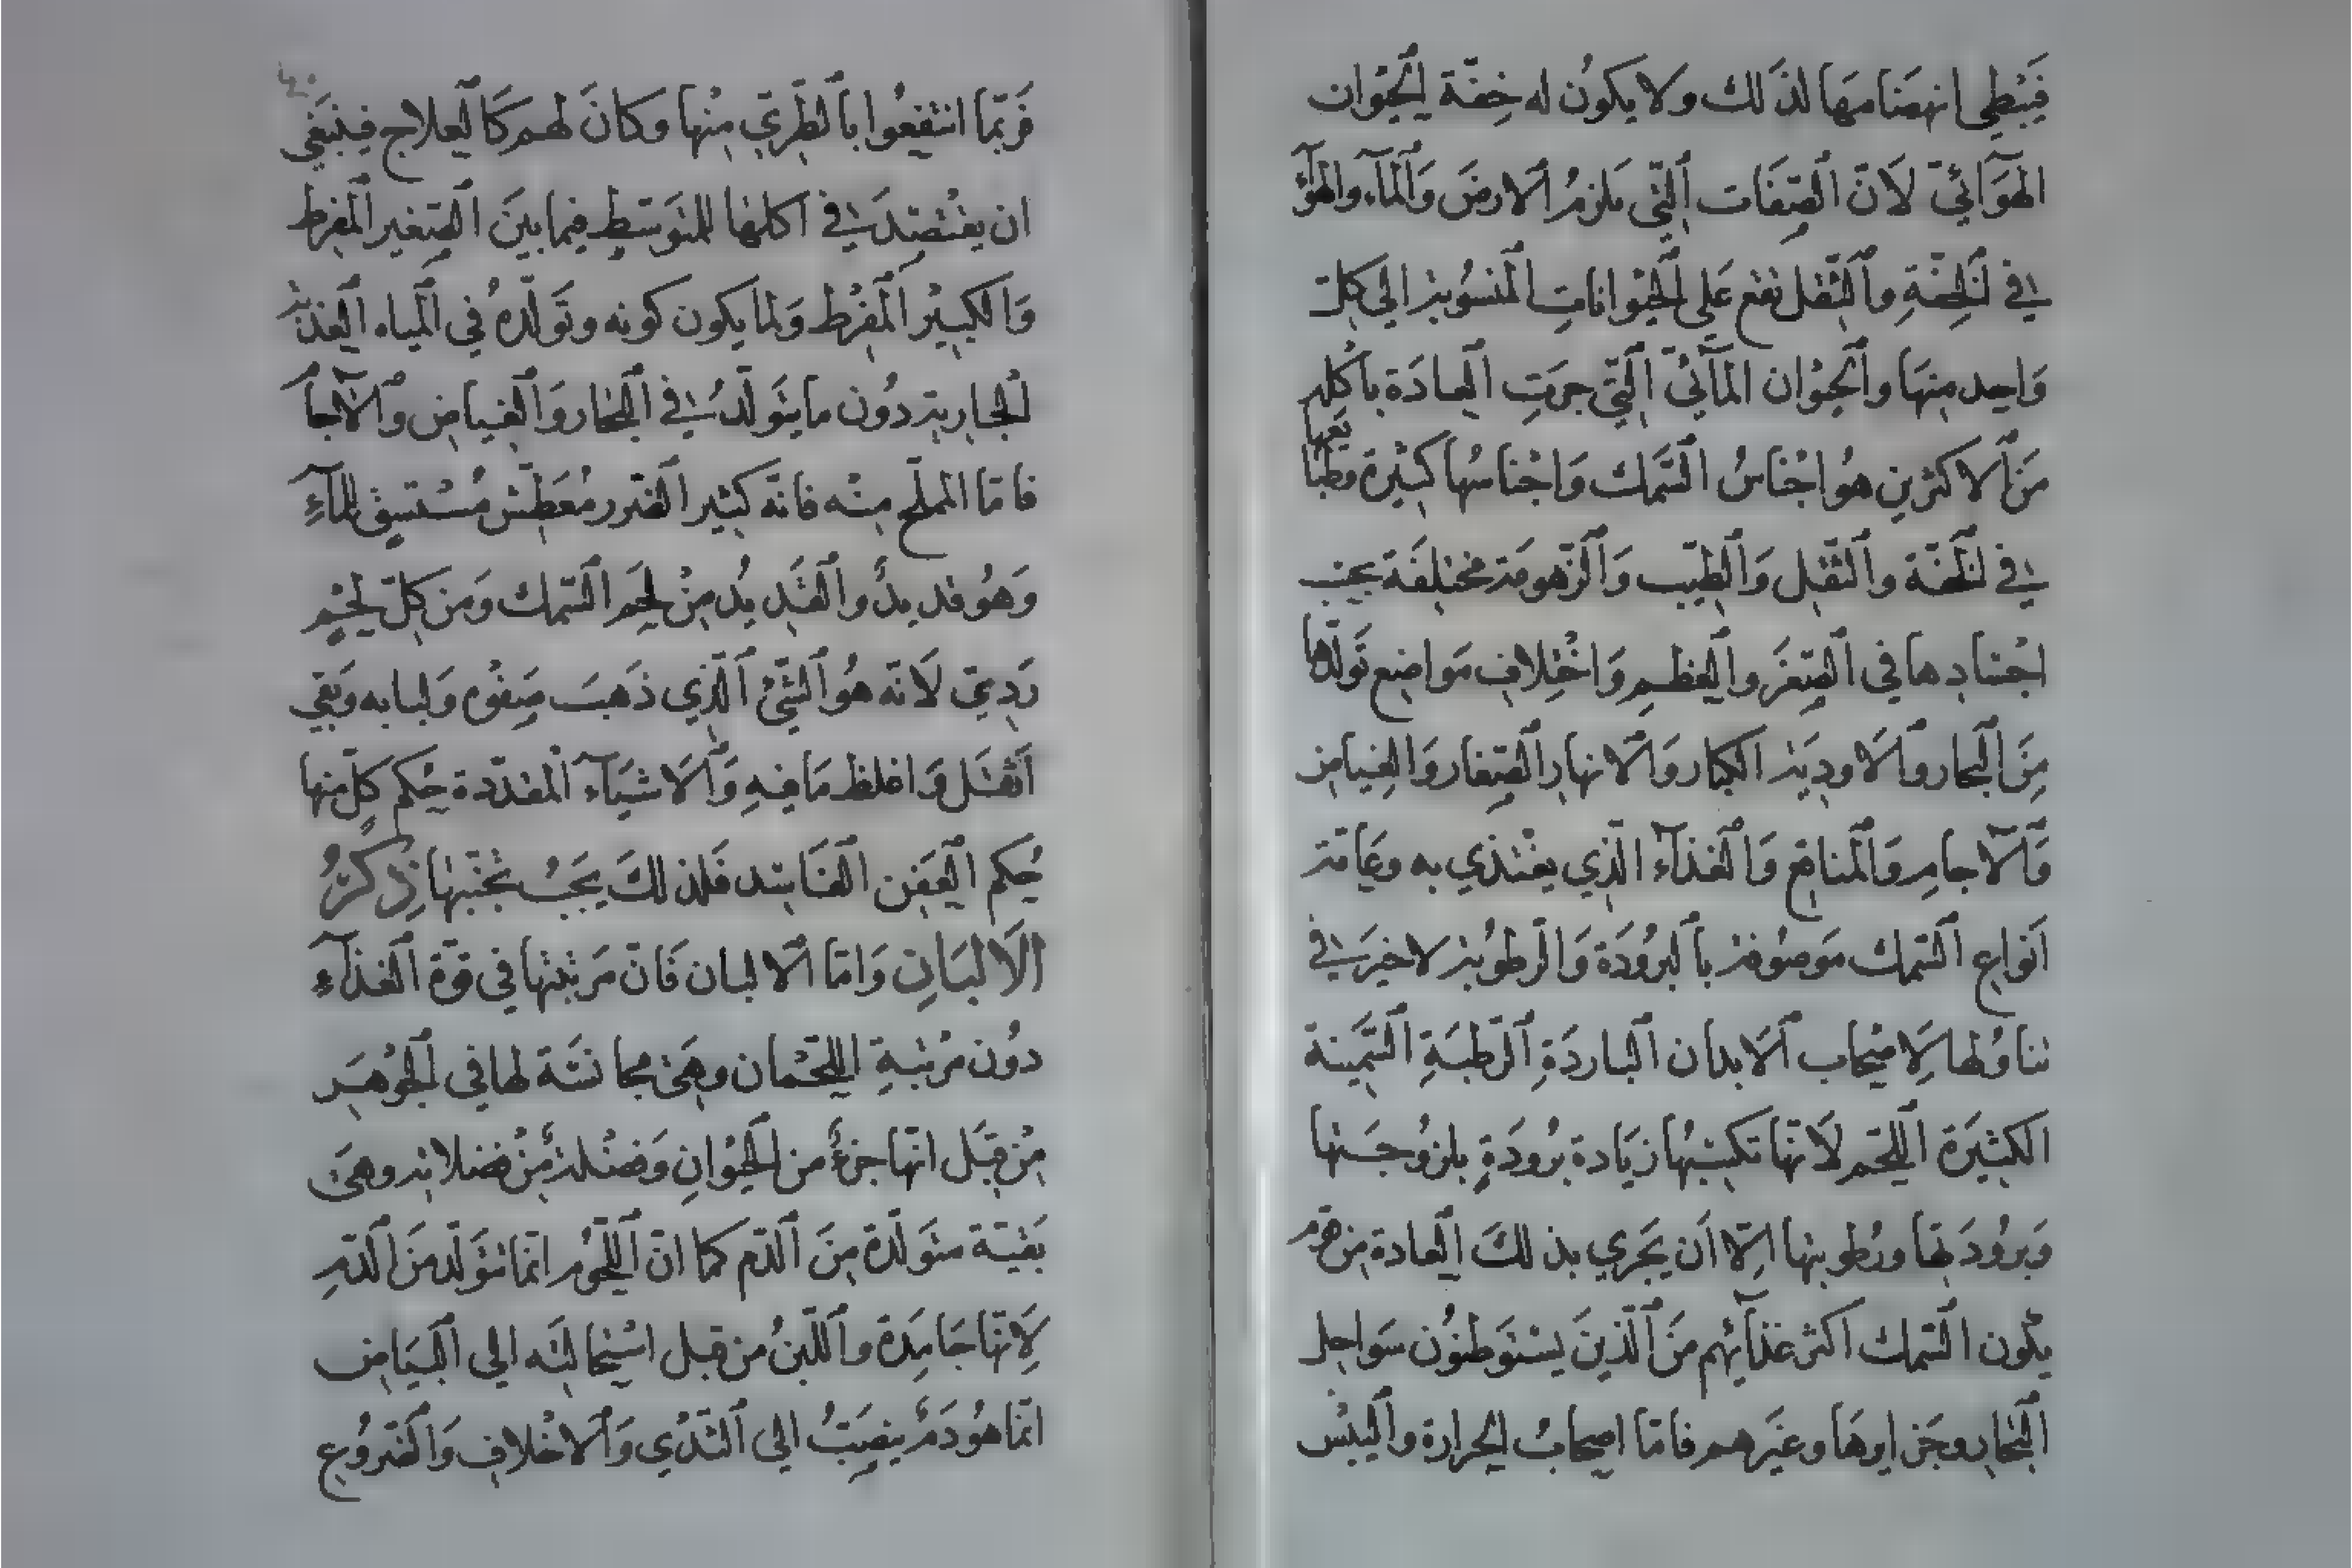 فَيُبْطِي انهضَامهَا لذَلك وَلا يكوُن له خِفّة الحَيَوان
الهَوَائيّ لَانّ الصِّفَات الّتي يَلزمُ الارضَ وَالمآء والهوآء
في الخِفّةِ والثّقل تقع عَلى الحيَوانَاتِ المنسُوبة الى كلّ
وَاحد منِهَا والحيَوْان المآئيّ الّتي جرَتِ العادَة باكلهِ
مَن الاكثرين هُو اجْناسُ السَّمك وَاجْناسُها كثيرة وطبايعها
في الخفّة والثّقل وَالطيّب وَالزّهومَة مختلِفَة بحسَب
اجْسَادهَا في الصّغَر والعِظم وَاخْتِلافِ مَواضِع تَولّدها
مِنَ البحار والاودِيَة الكبار وَالانهار الصّغار وَالغِياض
وَالآجامِ وَالمنَاقع وَالغذآء الّذي يغْتذي به وعَامّة
اَنواعِ السّمك مَوصُوفة بالبرُودَة وَالرّطوُبة لاخيَر في
تناوُلها لِاصْحاب الابدان البارَدَةِ الرّطبَةِ السَّمِينة
الكثيَرة اللّحَم لَانّها تكسِبُها زيَادة برُودَةٍ بلزوُجَتها
وَبروُدَتهَا ورُطوبتها اِلّا اَن يَجَري بذلكَ العادة من قوم
يكون السّمك اكثر غذآئهم مَن الّذينَ يسْتوَطنوُن سَواحل
البحار وجَزايرهَا وغيَرهم فامّا اصحابُ الحرارة واليُبْس
فَربّما انتفعُوا بالطّرِيّ مِنْها وكانَ لهم كَالعلاج فينبَغي
ان يقتْصَدَ في اكلها للمتوَسّط فيما بينَ الصّغير المفرط
وَالكبيْر المفْرط وَلما يكون كونه وتَولّدهُ في المياه العَذبَة
الجارية دُون ما يتوَلّدُ في البحار وَالغياض والآجَا
فامّا المملّح مِنْه فانّه كثير الضّرر مُعَطّش مُسْتسقٍ للمآءِ
وَهُو قديدٌ والقَديُد مِنْ لحَم السّمك وَمن كلّ لحْم
رَدِيّ لَانّه هُو الشّئُ الّذي ذَهبَ صَفوْه وَلبابه وَبقي
اَثقَل وَاغلظ مَا فيهِ وَالَاشيَآء المقدّدة حُكم كلّ منها
حُكم العَفِن الفَاسد فَلذلكَ يَجبُ تجنّبهَا ذِكرُ
الَالبَانِ وَامّا الالبان فَانّ مَرتبتها في قوّة الغذآءِ
دوُن مرْتبةِ اللحْمان وهَي مجانسَة لها في الجوَهَر
مِنْ قِبَل انّها جزءٌ من الحيَوانِ وَفضْلةٌ مِنْ فضلاته وهَي
بَقيّة متوَلّدة مِنَ الدّم كما انّ اللّحُوم انّما تتوَلّد مَن الدّمِ
لِانّها جَامِدَة واللّبنُ من قِبل اسْتحالتَه الى البيَاض
انّما هُو دَمٌ يَنصبُّ الى الثّدْي وَالاخْلافِ وَالضّروُع